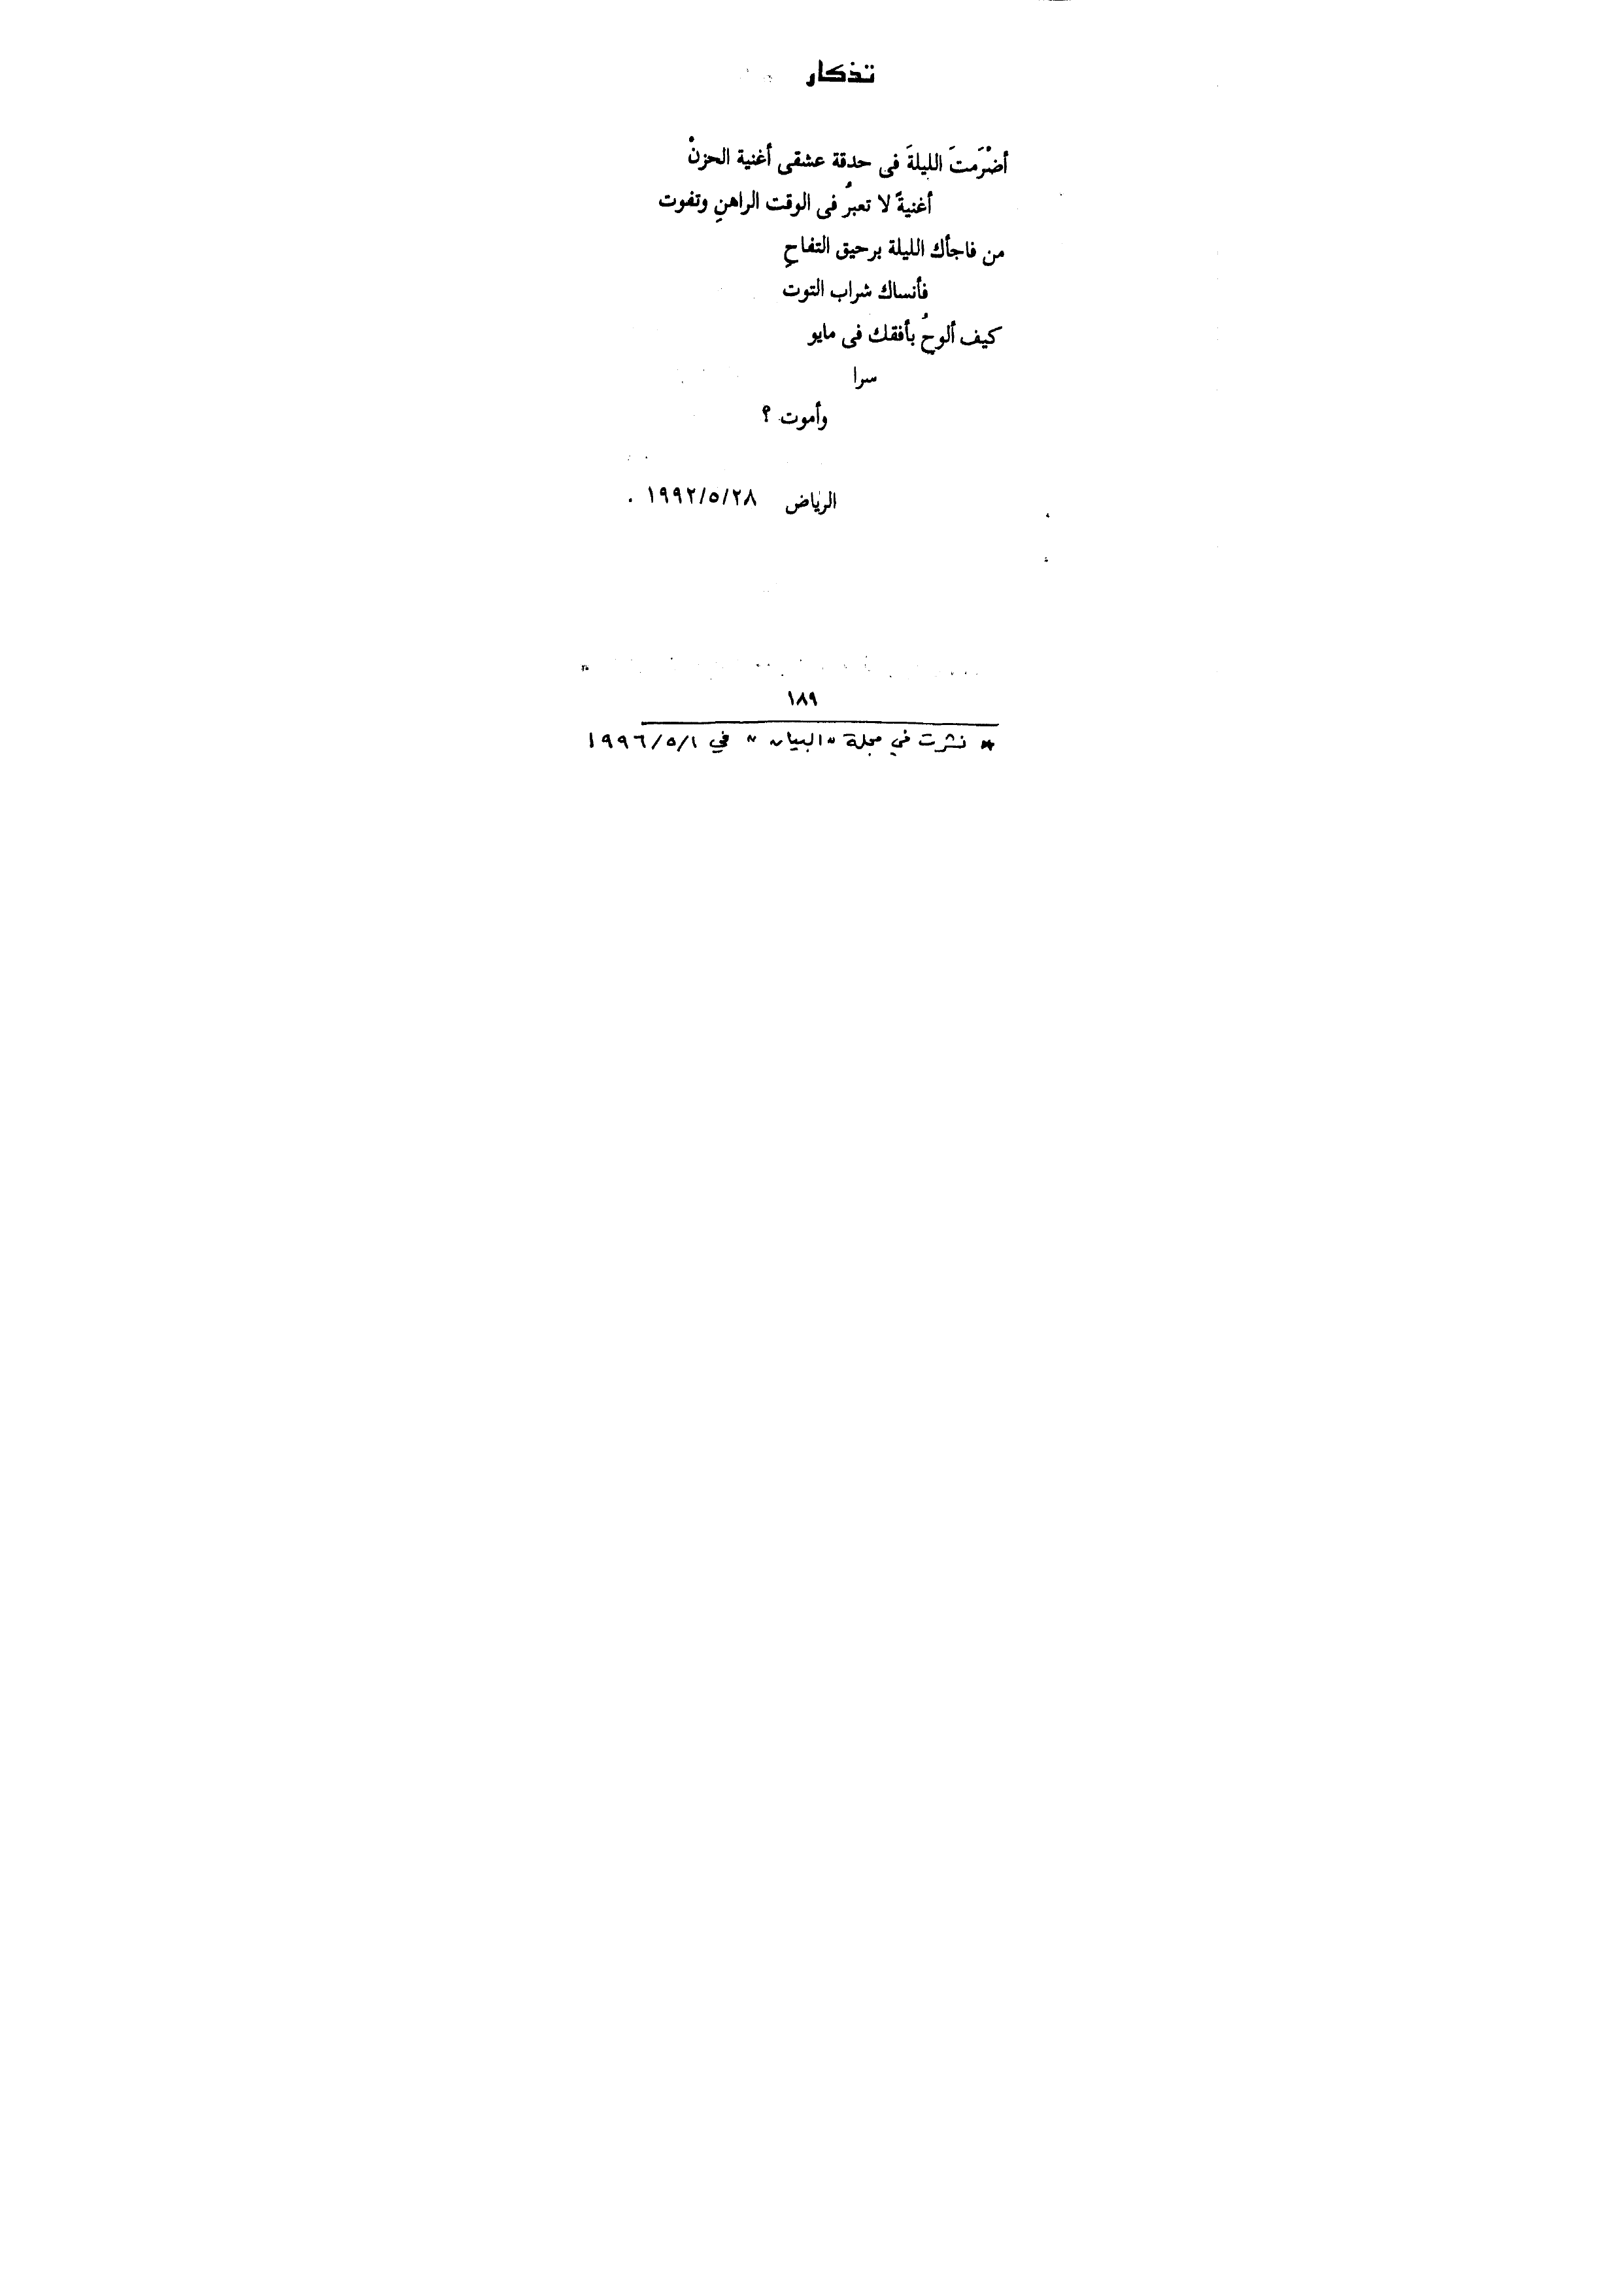 تذكار
أضْرَمتَ الليلةَ فى حدقة عشقى أغنية الحزنْ
أغنيةً لا تعبرُ فى الوقت الراهنِ وتفوت
من فاجأك الليلة برحيق التفاحِ
فأنساك شراب التوت
كيف ألوحُ بأفقك فى مايو
سرا
وأموت ؟
الرياض ١٩٩٢/٥/٢٨ .
١٨٩
* نشرت في مجلة "البيان" في ١٩٩٦/٥/١